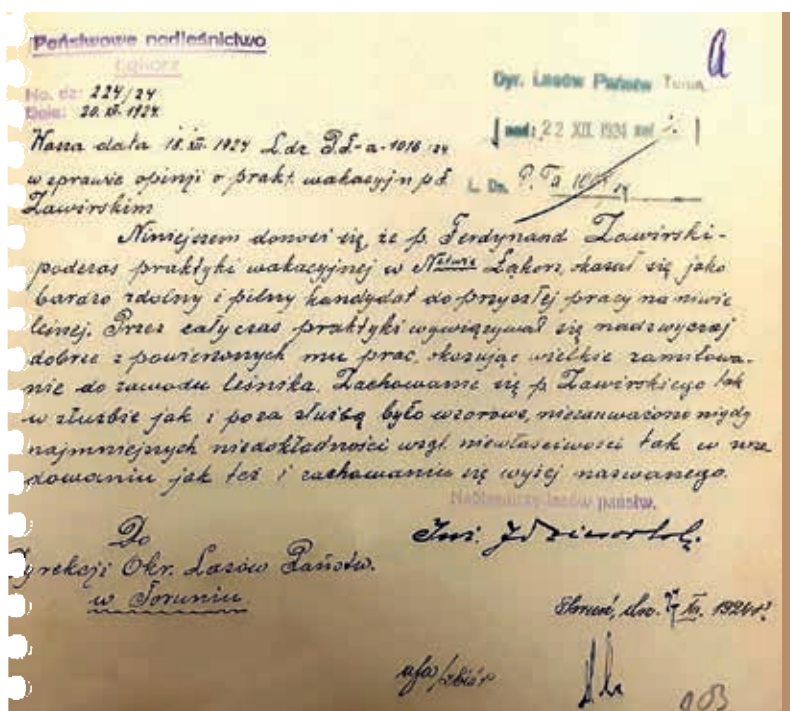 Państwowe nadleśnictwo
Łąkorz
No. dz: 224/24
Data: 20.XII.1924.
Wasza data 18.XII.1924 L.dz P.Ł-a-1016/24
w sprawie opinji o prakt. wakacyjn p.F.
Zawirskim
a
Dyr. Lasów Państw Toruń
nad: 22 XII. 1924 zał
L. Dz.
Niniejszem donosi się, że p. Ferdynand Zawirski-
podczas praktyki wakacyjnej w Nctwie Łąkorz, okazał się jako
bardzo zdolny i pilny kandydat do przyszłej pracy na niwie
leśnej. Przez cały czas praktyki wywiązywał się nadzwyczaj
dobrze z powierzonych mu prac, okazując wielkie zamiłowa-
nie do zawodu leśnika. Zachowanie się p. Zawirskiego tak
w służbie jak i poza służbą było wzorowe, niezauważono nigdy
najmniejszych niedokładności wzgl. niewłaściwości tak w urzę
dowaniu jak też i zachowaniu się wyżej nazwanego.
Nadleśniczy lasów państw.
Inż.
Do
Dyrekcji Okr. Lasów Państw.
w Toruniu.
XII. 1924 r.